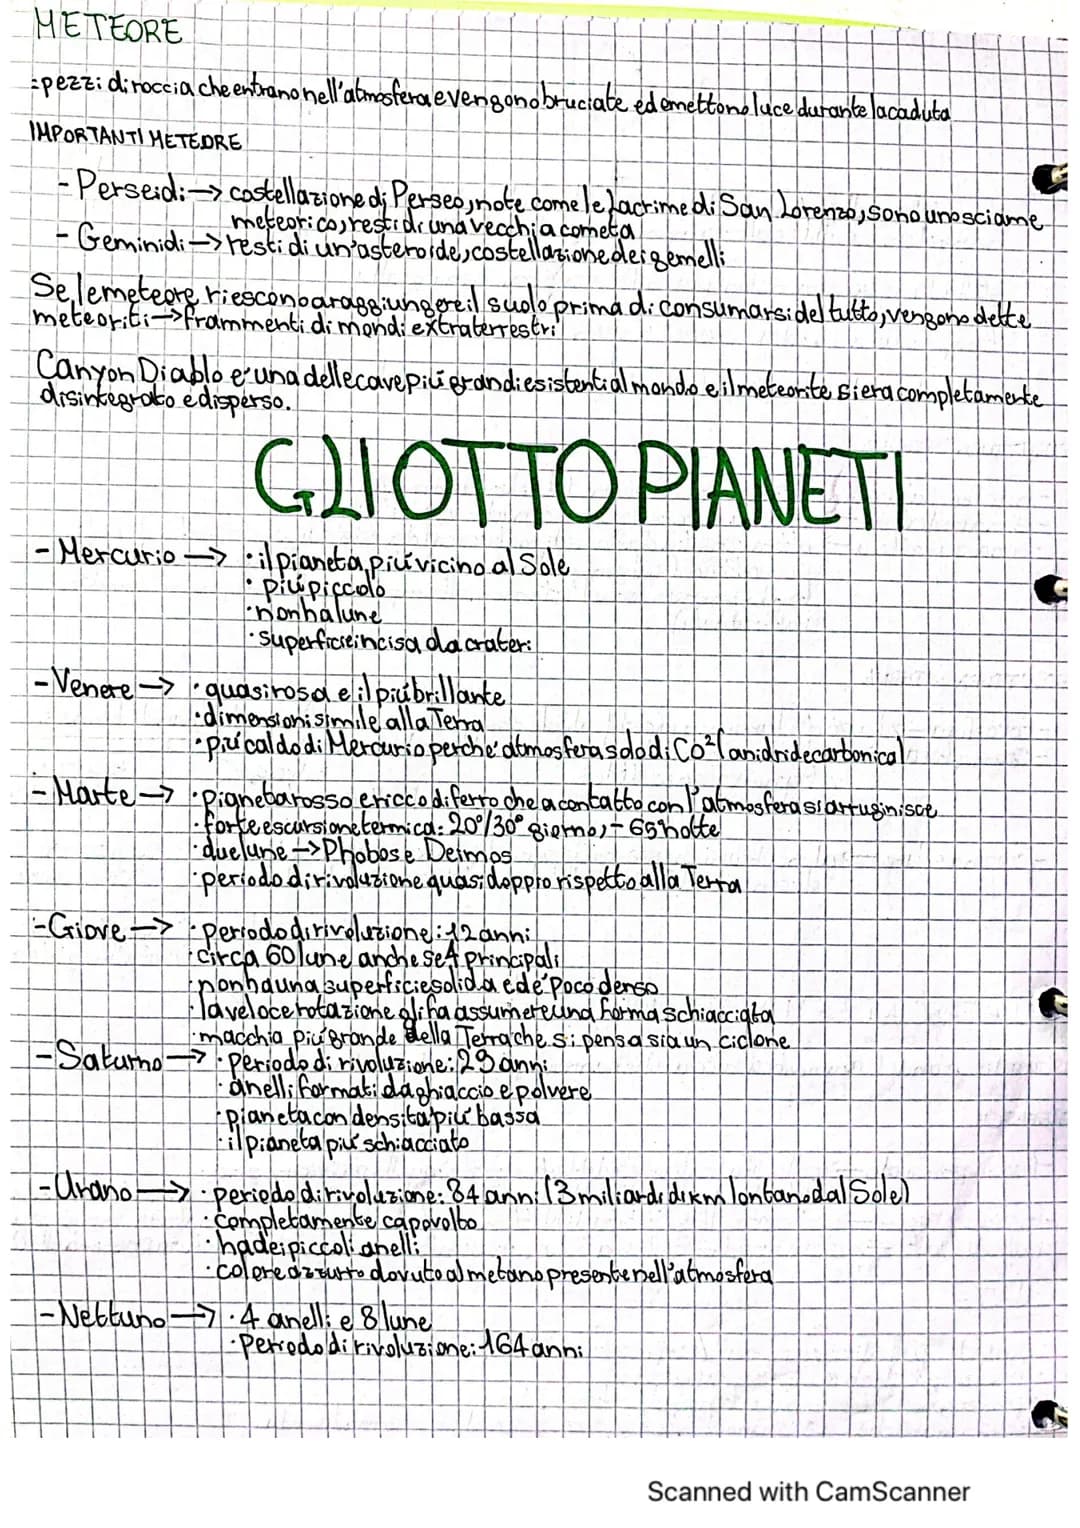 METEORE
=pezzi di roccia che entrano nell'atmosfera e vengono bruciate ed emettono luce durante la caduta
IMPORTANTI METEORE
- Perseidi → costellazione di Perseo, note come le lacrime di San Lorenzo, sono uno sciame
meteorico, resti di una vecchia cometa
- Geminidi → resti di un'asteroide, costellazione dei gemelli
Se le meteore riescono a raggiungere il suolo prima di consumarsi del tutto, vengono dette
meteoriti → frammenti di mondi extraterrestri
Canyon Diablo e' una delle cave più grandi esistenti al mondo e il meteorite si era completamente
disintegrato e disperso.
GLI OTTO PIANETI
- Mercurio → · il pianeta più vicino al Sole
· più piccolo
· non ha lune
· superficie incisa da crateri
- Venere → · quasi rosa e il più brillante
· dimensioni simile alla Terra
· più caldo di Mercurio perche' atmosfera solo di CO² (anidride carbonica)
- Marte → · pianeta rosso e ricco di ferro che a contatto con l'atmosfera si arruginisce
· forte escursione termica: 20°/30° giorno, - 65 notte
· due lune → Phobos e Deimos
· periodo di rivoluzione quasi doppio rispetto alla Terra
- Giove → · periodo di rivoluzione: 12 anni
· circa 60 lune anche se 4 principali
· non ha una superficie solida ed è poco denso
· la veloce rotazione gli fa assumere una forma schiacciata
· macchia più grande della Terra che si pensa sia un ciclone
- Saturno → · periodo di rivoluzione: 29 anni
· anelli formati da ghiaccio e polvere
· pianeta con densita' più bassa
· il pianeta più schiacciato
- Urano → · periodo di rivoluzione: 84 anni (3 miliardi di km lontano dal Sole)
· completamente capovolto
· ha dei piccoli anelli
· colore azzurro dovuto al metano presente nell'atmosfera
- Nettuno → · 4 anelli e 8 lune
· Periodo di rivoluzione: 164 anni
Scanned with CamScanner